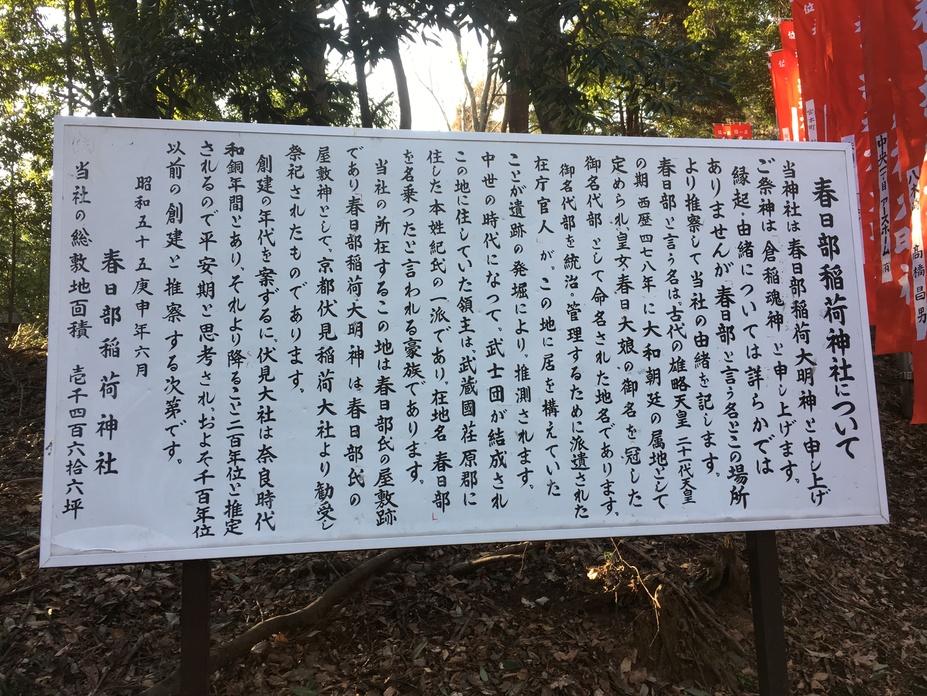 春日部稲荷神社について
当神社は春日部稲荷大明神と申し上げ
ご祭神は"倉稲魂神"と申し上げます。
縁起・由緒については詳らかでは
ありませんが春日部と言う名とこの場所
より推察して当社の由緒を記します。
春日部と言う名は、古代の雄略天皇 二十一代天皇
の期 西歴四七八年に大和朝廷の属地として
定められ、皇女"春日大娘の御名を冠した
御名代部"として命名された地名であります。
御名代部を統治。管理するために派遣された
在庁官人"が、この地に居を構えていた
ことが遺跡の発堀により、推測されます。
中世の時代になって、武士団が結成され
この地に住していた領主は武蔵國荏原郡に
住した本姓紀氏の一派であり、在地名"春日部
を名乗ったと言われる豪族であります。
当社の所在するこの地は春日部氏の屋敷跡
であり春日部稲荷大明神は春日部氏の
屋敷神として、京都伏見稲荷大社より勧受し
祭祀されたものであります。
創建の年代を案ずるに、伏見大社は奈良時代
和銅年間とあり、それより降ること二百年位と推定
されるので平安期と思考され、およそ千百年位
以前の創建と推察する次第です。
昭和五十五庚申年六月
春日部稲荷神社
当社の総敷地面積 壱千四百六拾六坪
中央一丁目 アースホーム(有)
高橋昌男